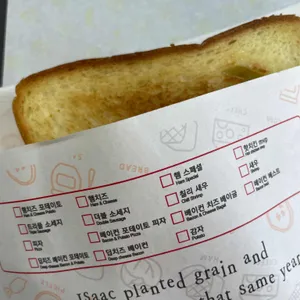 햄치즈 포테이토
Ham & Cheese Potato
더블 소세지
피자
Pizza
딥치즈 베이컨 포테이토
Deep cheese Bacon & Potato
햄치즈
Ham & Cheese
더블 소세지
Double Sausage
베이컨 포테이토 피자
Bacon & Potato Pizza
딥치즈 베이컨
Deep cheese Bacon
햄 스페셜
Ham Special
칠리 새우
Chili Shrimp
베이컨 치즈 베이글
Bacon & Cheese Bagel
감자
Potato
새우
Shrimp
베이컨 베스트
Bacon Best
BREAD
Isaac planted grain and
that same year